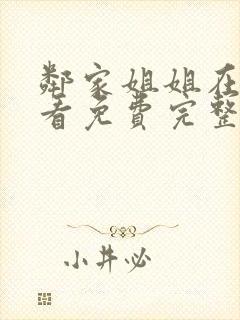 鄰家姐姐在
看免費完整
小井必